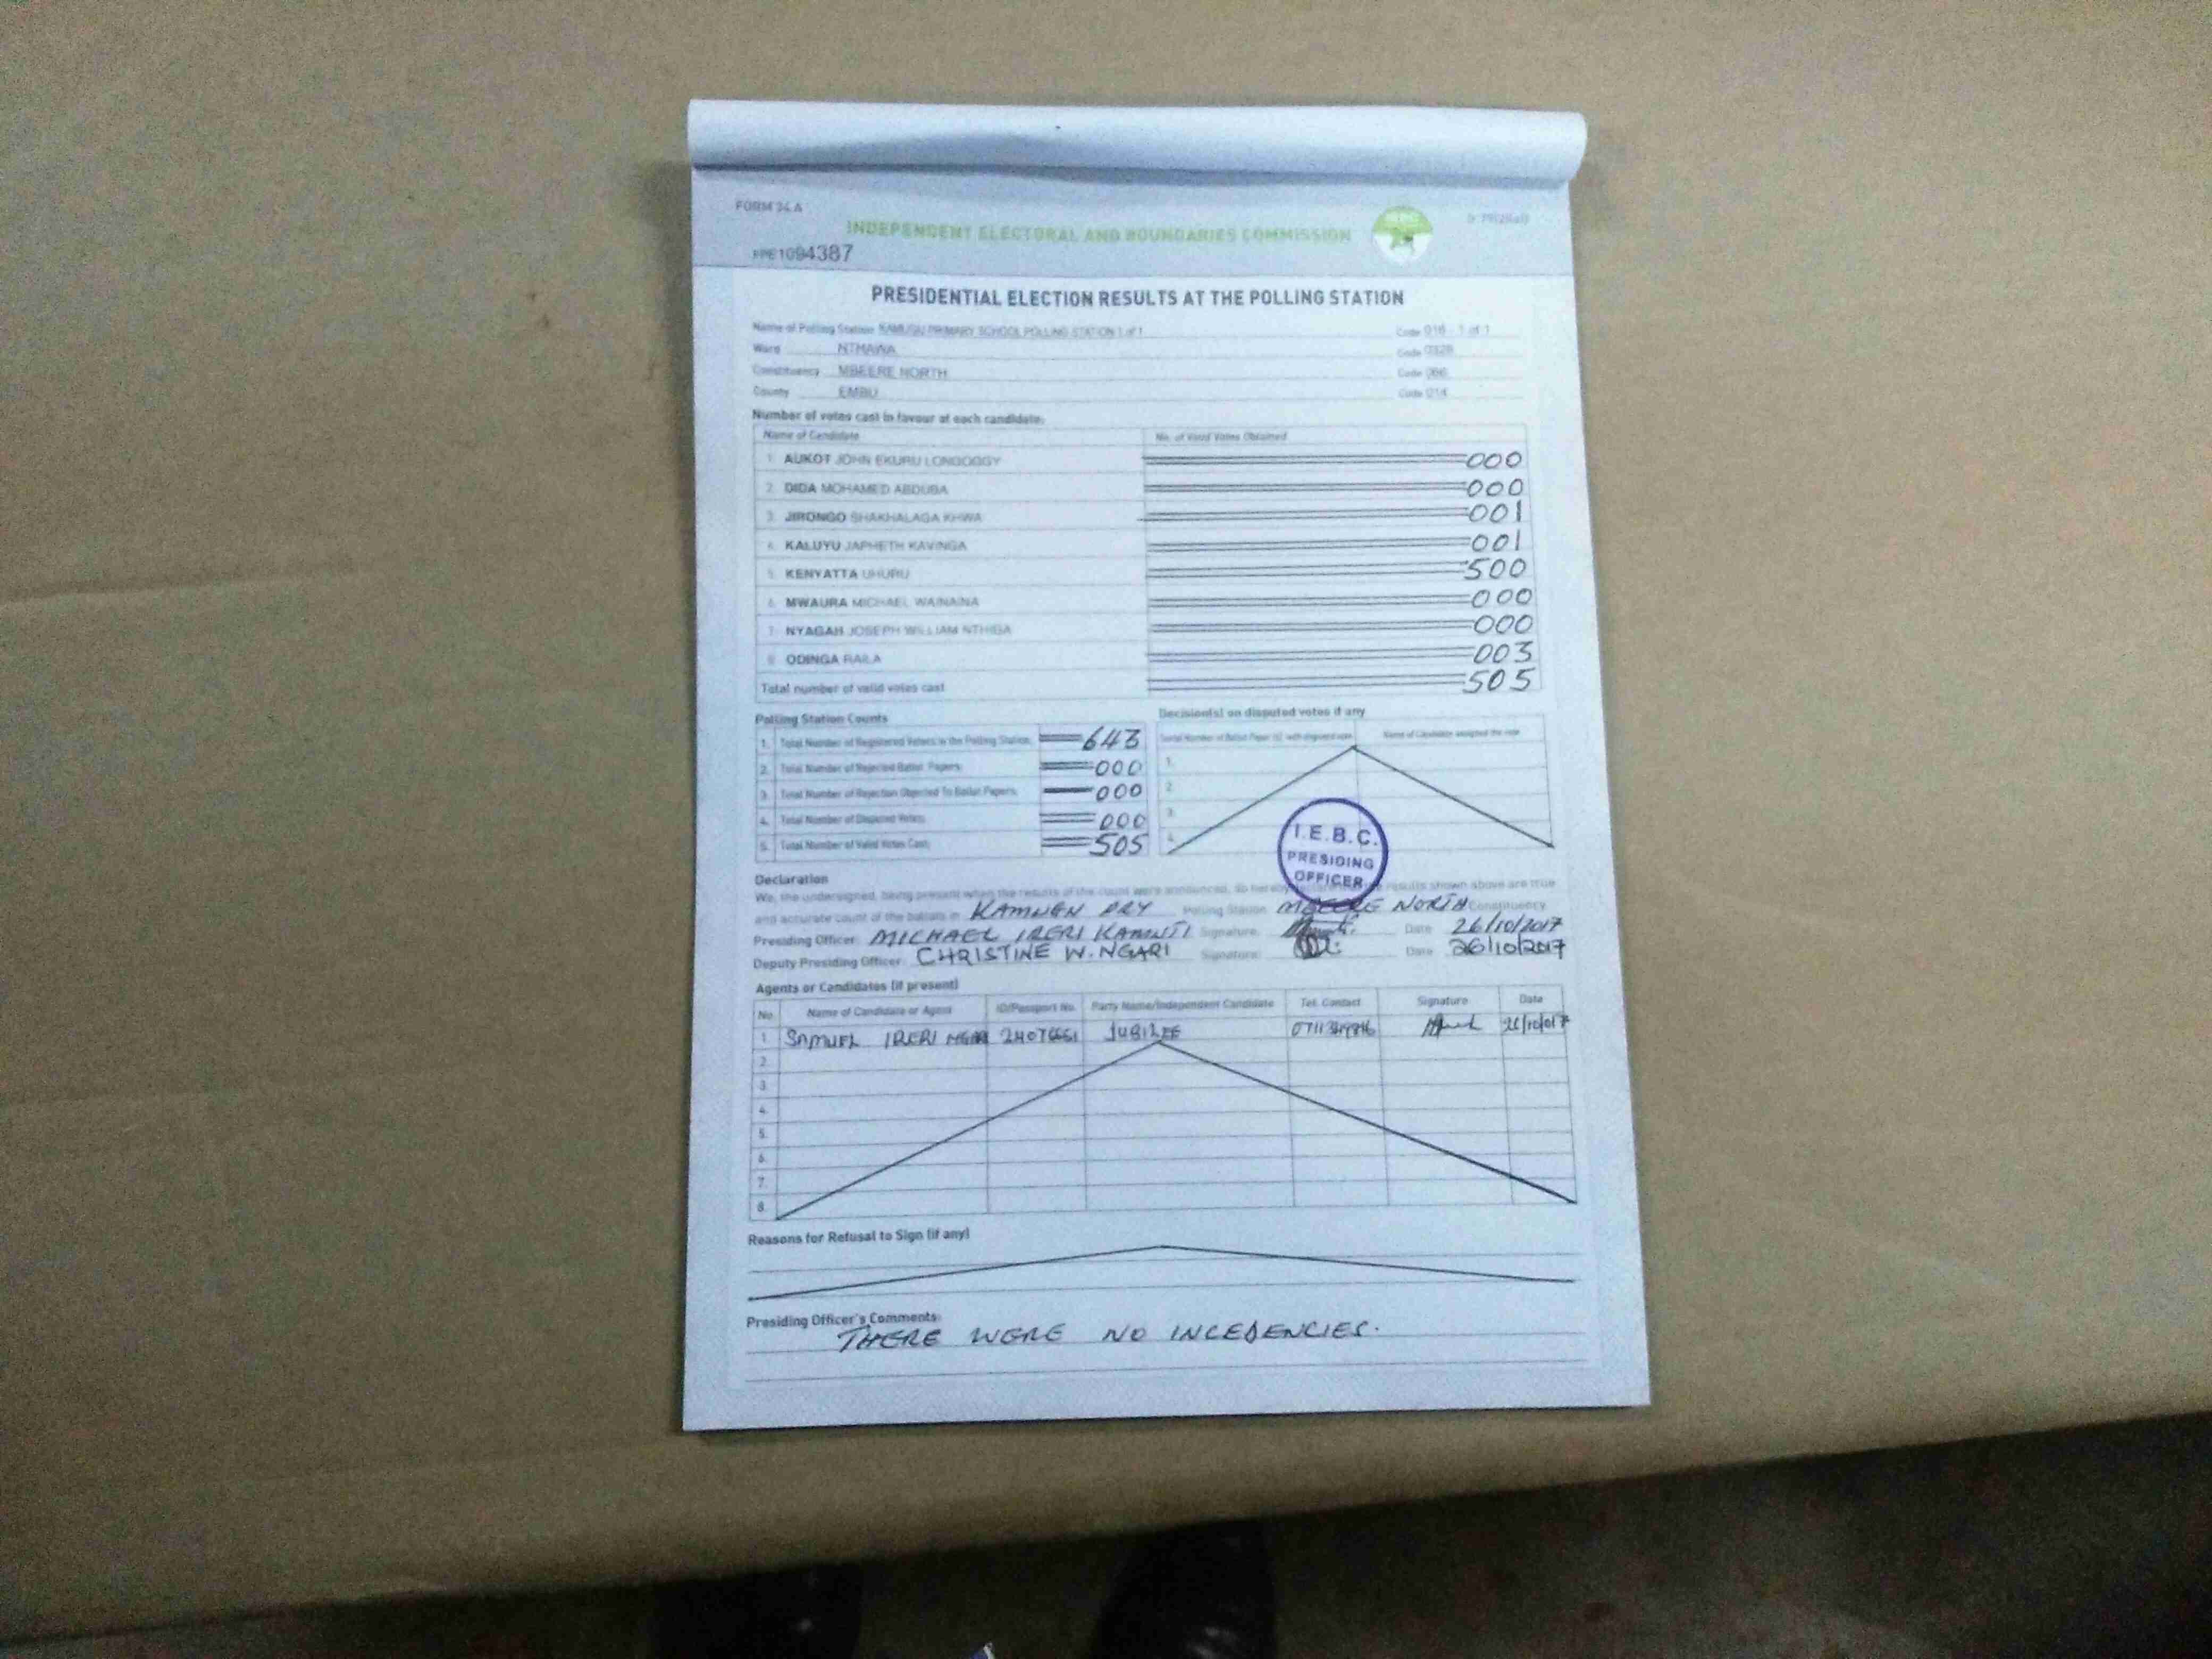 FORM 34 A
INDEPENDENT ELECTORAL AND BOUNDARIES COMMISSION
PPE1094387
PRESIDENTIAL ELECTION RESULTS AT THE POLLING STATION
Name of Polling Station PRIMARY SCHOOL POLLING STATION 1 of 1 Code 016 - 1 of 1
Ward NTHAWA Code
Constituency MBEERE NORTH Code
County EMBU Code 014
Number of votes cast in favour of each candidate:
Name of Candidate No. of Valid Votes Obtained
1. AUKOT JOHN EKURU LONGOGGY 000
2. DIDA MOHAMED ABDUBA 000
3. JIRONGO SHAKHALAGA KHWA 001
4. KALUYU JAPHETH KAVINGA 001
5. KENYATTA UHURU 500
6. MWAURA MICHAEL WAINAINA 000
7. NYAGAH JOSEPH WILLIAM NTHIGA 000
8. ODINGA RAILA 003
Total number of valid votes cast 505
Polling Station Counts
1. Total Number of Registered Voters in the Polling Station 643
2. Total Number of Rejected Ballot Papers 000
3. Total Number of Rejection Objected To Ballot Papers 000
4. Total Number of Disputed Votes 000
5. Total Number of Valid Votes Cast 505
Decision(s) on disputed votes if any
Serial Number of Ballot Paper (s) with disputed vote Name of Candidate assigned the vote
1.
2.
3.
4.
I.E.B.C.
PRESIDING
OFFICER
Declaration
We, the undersigned, being present when the results of the count were announced, do hereby declare that the results shown above are true
and accurate count of the ballots in PRY Polling Station MBEERE NORTH Constituency
Presiding Officer: MICHAEL IRERI Signature: Date 26/10/2017
Deputy Presiding Officer: CHRISTINE W. NGARI Signature: Date 26/10/2017
Agents or Candidates (if present)
No. Name of Candidate or Agent ID/Passport No. Party Name/Independent Candidate Tel. Contact Signature Date
1. SAMUEL IRERI JUBILEE
2.
3.
4.
5.
6.
7.
8.
Reasons for Refusal to Sign (if any)
Presiding Officer's Comments:
THERE WERE NO INCEDENCIES.